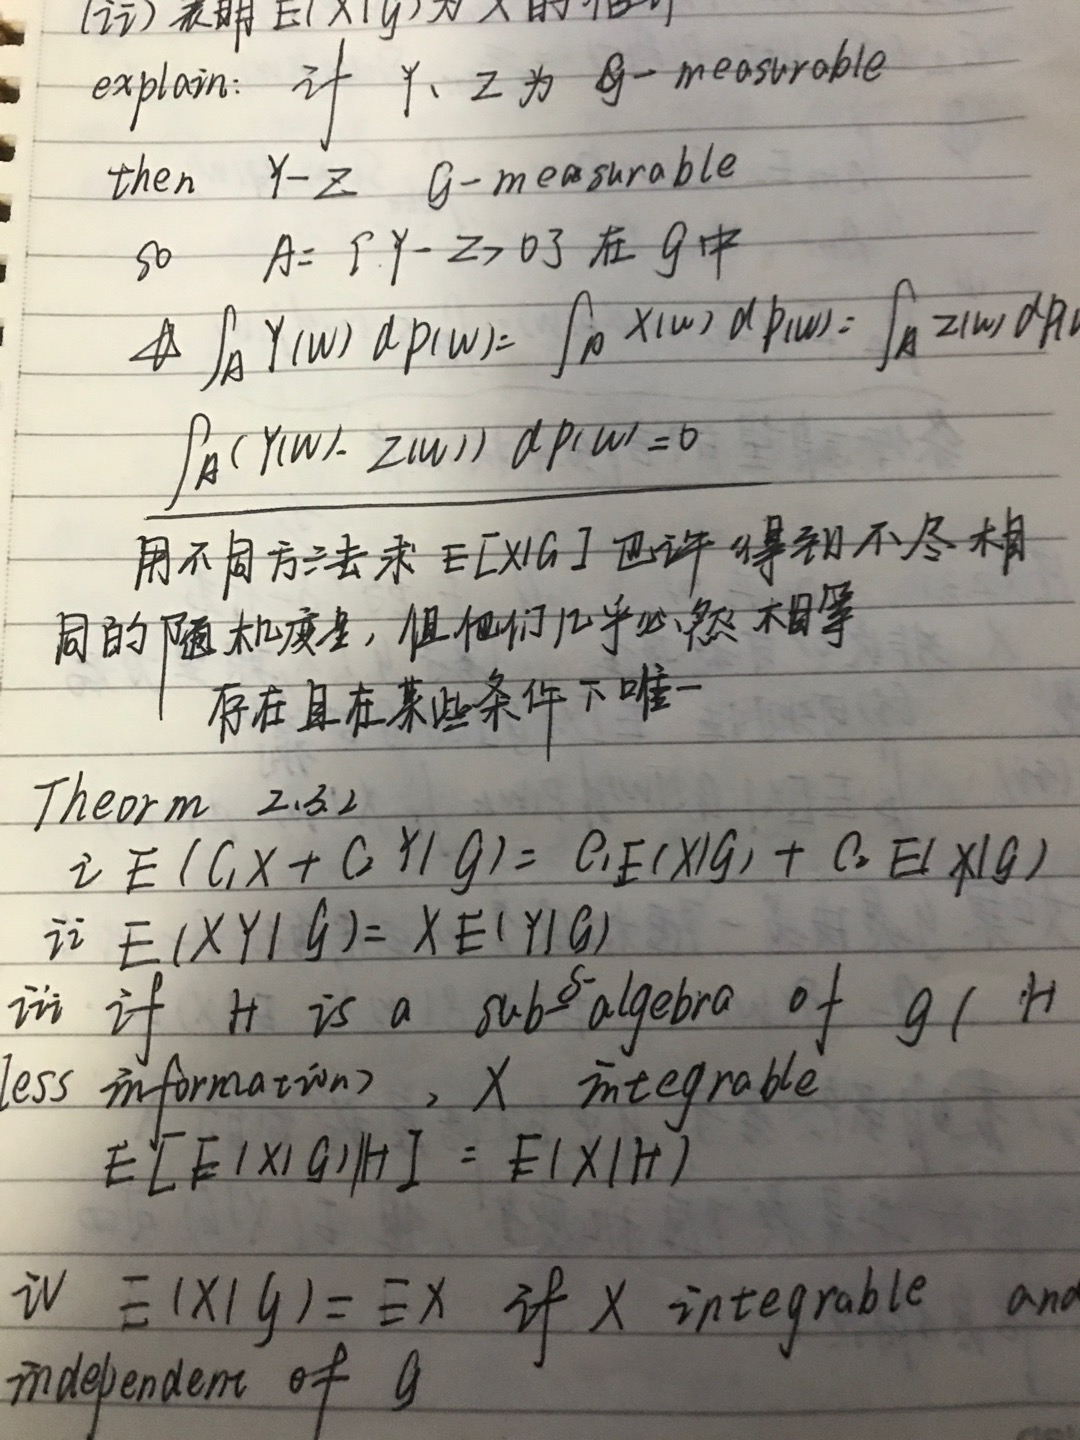 (ii) 表明 E(X|G) 为 X 的估计
explain: if Y、Z 为 G-measurable
then Y-Z G-measurable
so A= {Y-Z>0} 在 G 中
∫_A Y(w) dp(w)= ∫_A X(w) dp(w)= ∫_A Z(w) dp(w
∫_A (Y(w)- Z(w)) dp(w)=0
用不同方法求 E[X|G] 也许得到不尽相
同的随机度量,但他们几乎必然相等
存在且在某些条件下唯一
Theorm 2.3.2
i E(C₁X+C₂Y|G)= C₁E(X|G)+C₂E(X|G)
ii E(XY|G)= XE(Y|G)
iii if H is a sub-σ-algebra of G( H
less information), X integrable
E[E(X|G)|H] = E(X|H)
iv E(X|G)=EX if X integrable and
independent of G